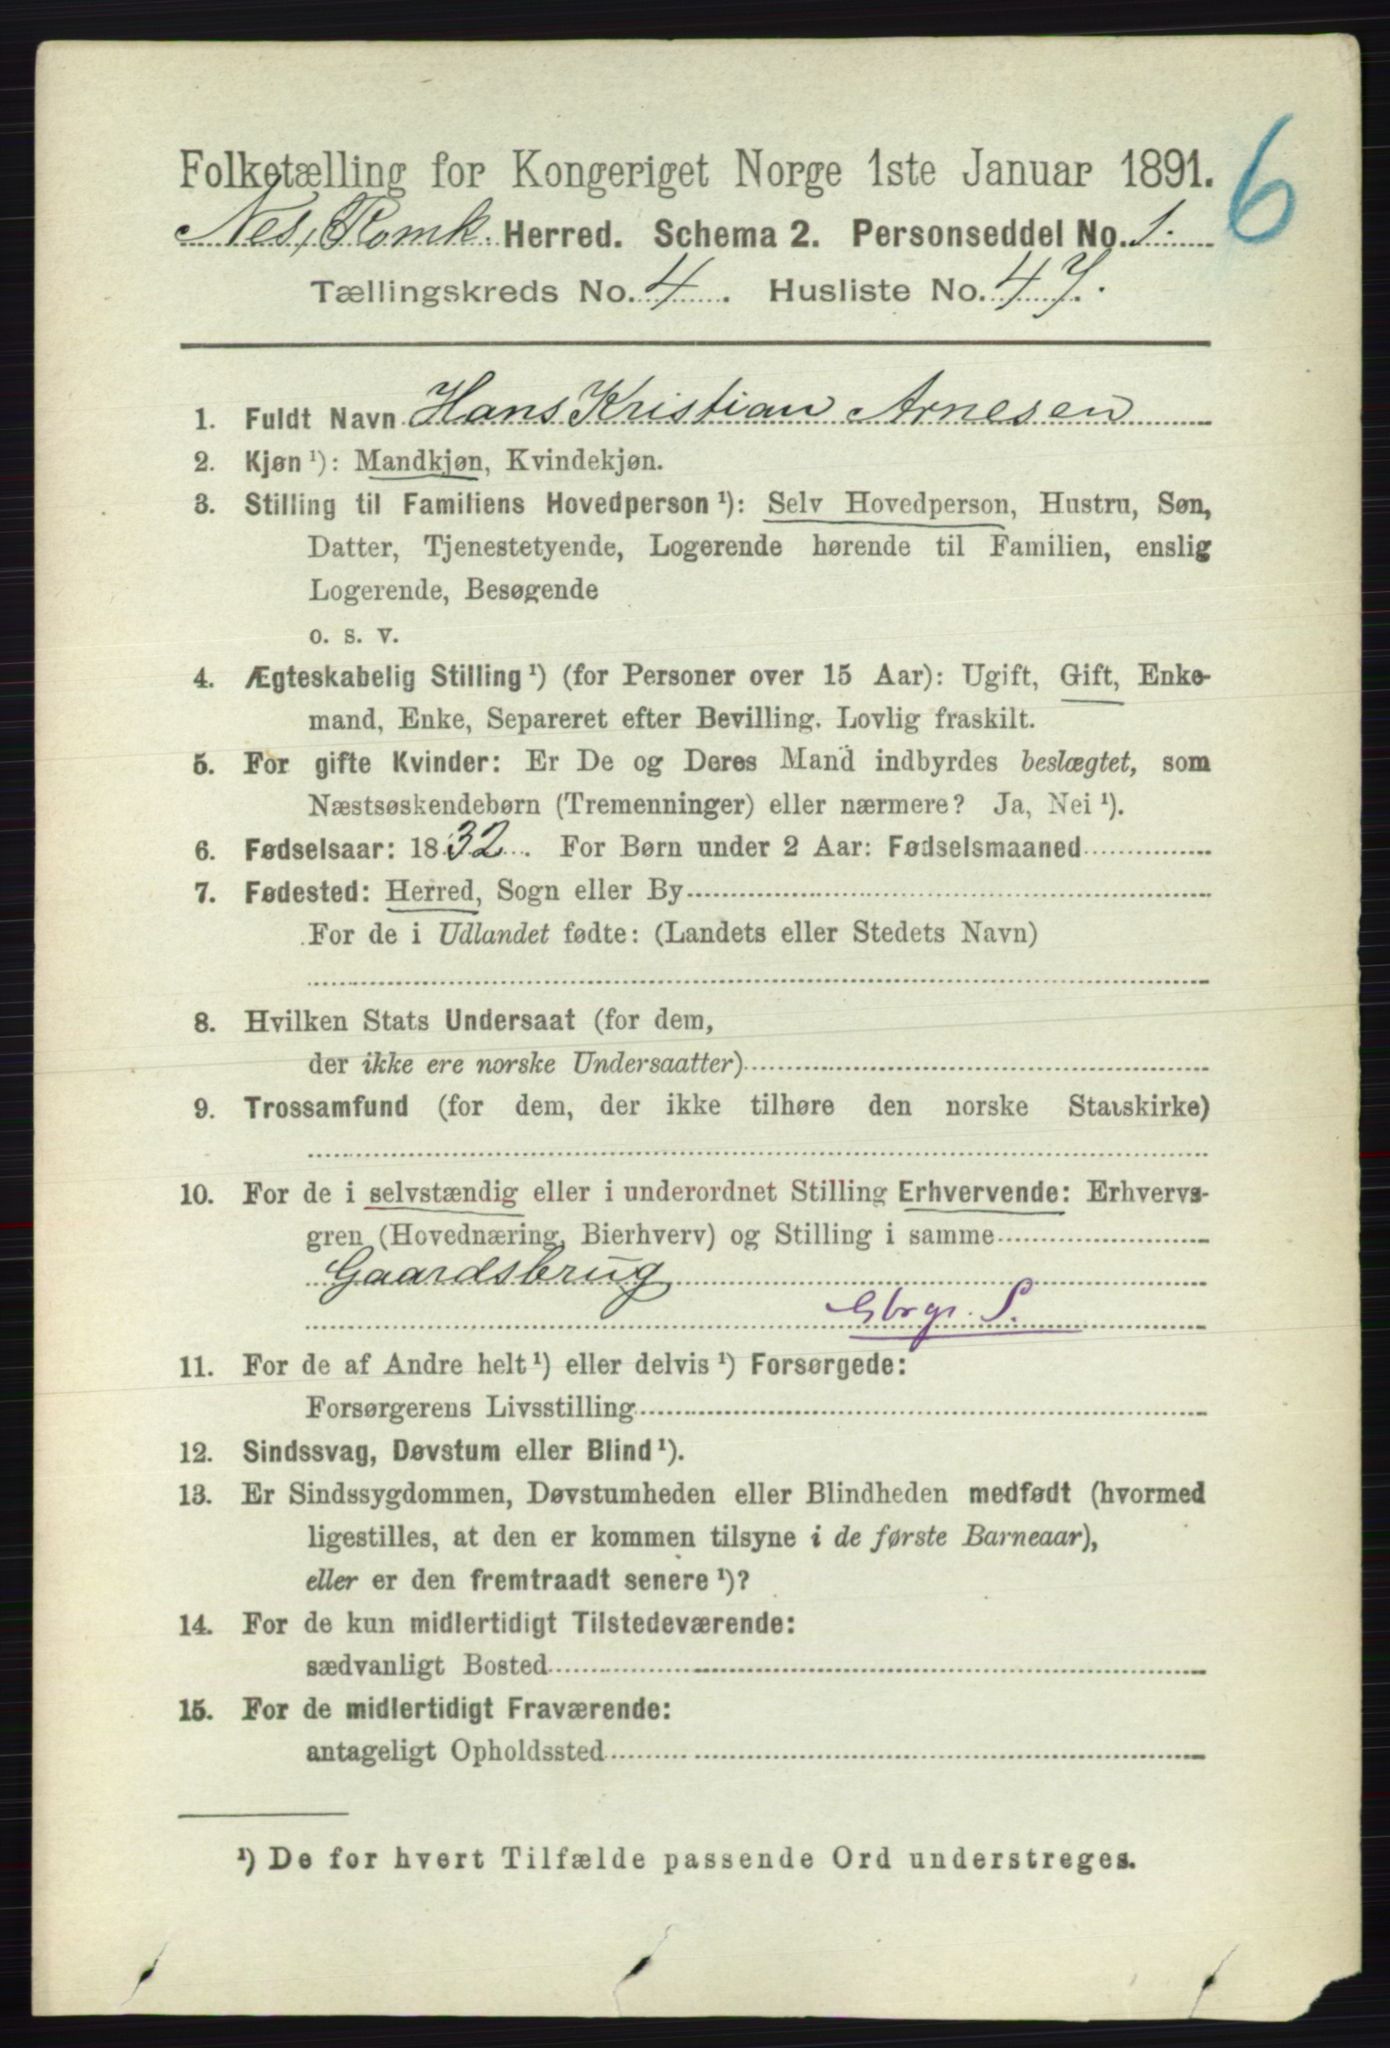 Folketælling for Kongeriget Norge 1ste Januar 1891.
6
Nes, Romk. Herred. Schema 2. Personseddel No. 1.
Tællingskreds No. 4. Husliste No. 47.
1. Fuldt Navn Hans Kristian Arnesen
2. Kjøn ¹): Mandkjøn, Kvindekjøn.
3. Stilling til Familiens Hovedperson ¹): Selv Hovedperson, Hustru, Søn,
Datter, Tjenestetyende, Logerende hørende til Familien, enslig
Logerende, Besøgende
o. s. v.
4. Ægteskabelig Stilling ¹) (for Personer over 15 Aar): Ugift, Gift, Enke-
mand, Enke, Separeret efter Bevilling. Lovlig fraskilt.
5. For gifte Kvinder: Er De og Deres Mand indbyrdes beslægtet, som
Næstsøskendebørn (Tremenninger) eller nærmere? Ja, Nei ¹).
6. Fødselsaar: 1832. For Børn under 2 Aar: Fødselsmaaned
7. Fødested: Herred, Sogn eller By
For de i Udlandet fødte: (Landets eller Stedets Navn)
8. Hvilken Stats Undersaat (for dem,
der ikke ere norske Undersaatter)
9. Trossamfund (for dem, der ikke tilhøre den norske Statskirke)
10. For de i selvstændig eller i underordnet Stilling Erhvervende: Erhvervs-
gren (Hovednæring, Bierhverv) og Stilling i samme
Gaardsbrug
Gbrgr. S.
11. For de af Andre helt ¹) eller delvis ¹) Forsørgede:
Forsørgerens Livsstilling
12. Sindssvag, Døvstum eller Blind ¹).
13. Er Sindssygdommen, Døvstumheden eller Blindheden medfødt (hvormed
ligestilles, at den er kommen tilsyne i de første Barneaar),
eller er den fremtraadt senere ¹)?
14. For de kun midlertidigt Tilstedeværende:
sædvanligt Bosted
15. For de midlertidigt Fraværende:
antageligt Opholdssted
¹) De for hvert Tilfælde passende Ord understreges.